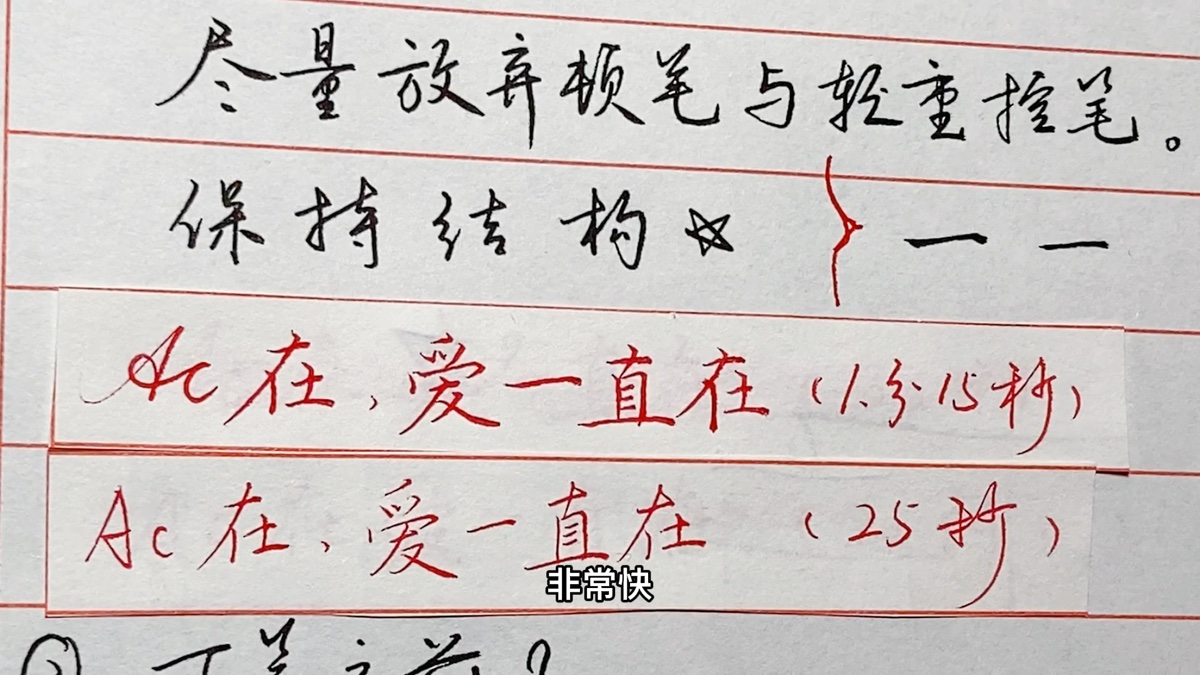 尽量放弃顿笔与轻重控笔。
保持结构☆ } 一 一
Ac在，爱一直在（1分15秒）
Ac在，爱一直在（25秒）
非常快